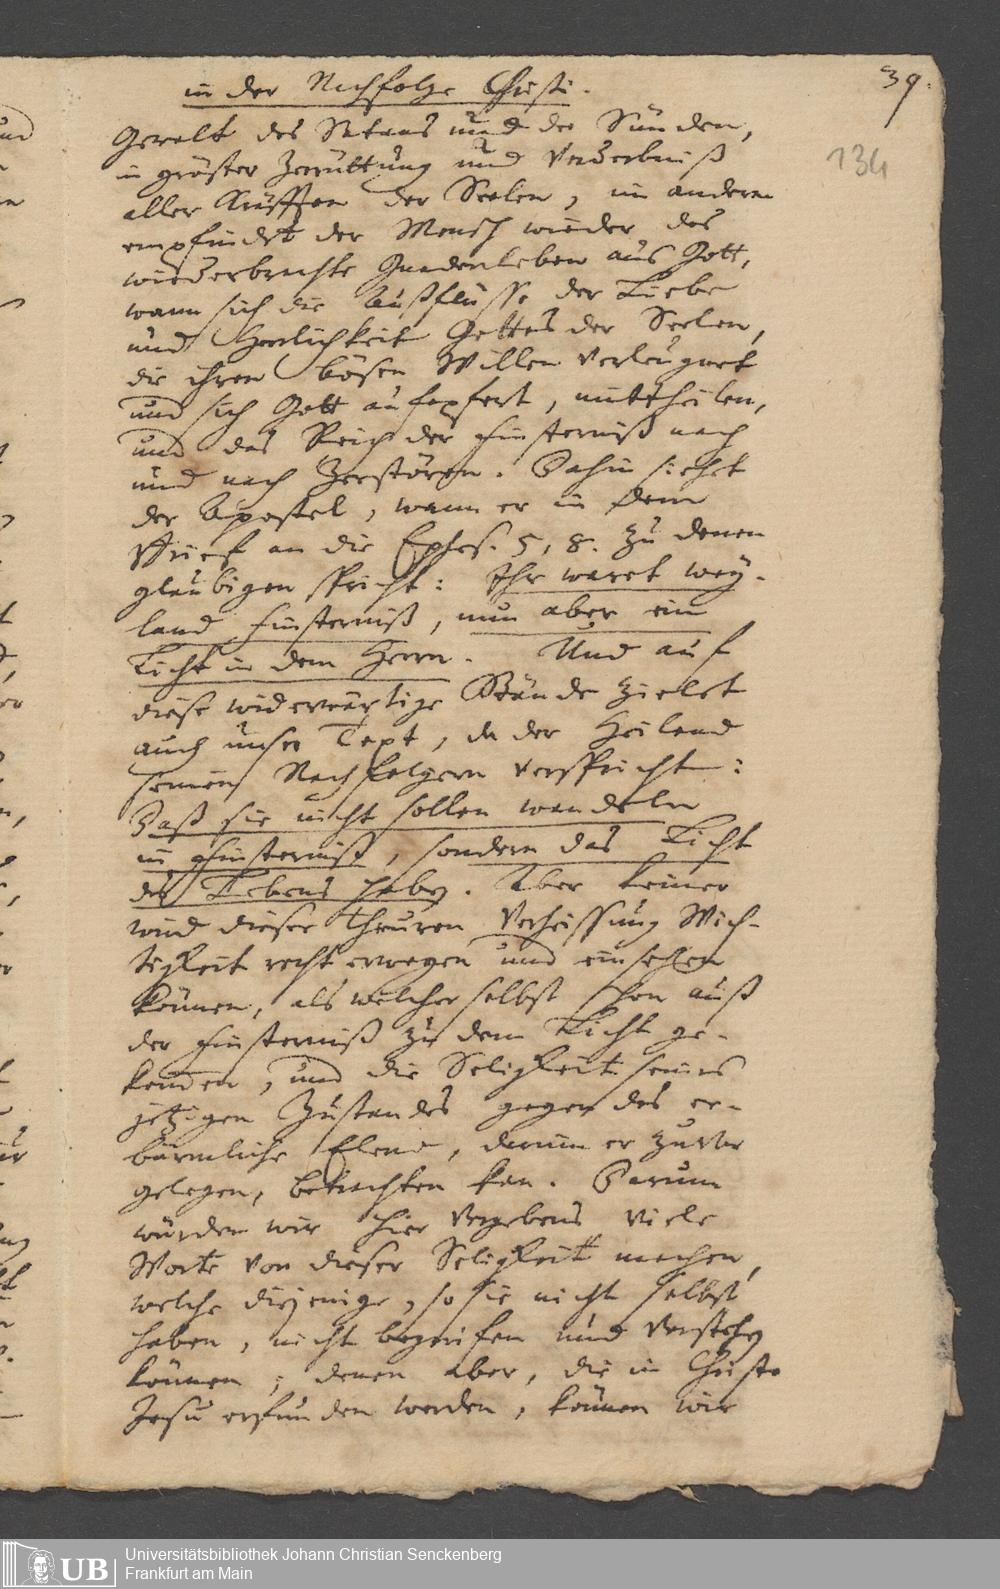 in der Nachfolge Christi.
39.
134
Gewalt des Satans und der Sünden,
in gröster Zerrüttung und Verderbniß
aller Kräfften der Seelen, im andern
empfindet der Mensch wieder das
wiederbrachte Gnadenleben aus Gott,
wann sich die Außflüsse der Liebe
und Herrlichkeit Gottes der Seelen,
die ihren bösen Willen verleugnet
und sich Gott aufopfert, mittheilen,
und das Reich der Finsterniß nach
und nach Zerstören. Dahin siehet
der Apostel, wann er in dem
Brief an die Ephes. 5, 8. zu denen
gläubigen spricht: Ihr waret wey-
land Finsterniß, nun aber ein
Licht in dem Herrn. Und auf
diese widerwärtige Stände zielet
auch unser Text, da der Heiland
seinen Nachfolgern verspricht:
Daß sie nicht sollen wandeln
in Finsterniß, sondern das Licht
des Lebens haben. Aber keiner
wird dieser theuren Verheissung Wich-
tigkeit recht erwegen und einsehen
können, als welcher selbst schon auß
der Finsterniß zu dem Licht ge-
kommen, und die Seligkeit seines
jetzigen Zustandes gegen das er-
bärmliche Elend, darinn er zuvor
gelegen, betrachten kan. Darum
würden wir hier vergebens viele
Worte von dieser Seligkeit machen,
welche diejenige, so sie nicht selbst
haben, nicht begreifen und verstehen
können; denen aber, die in Christo
Jesu erfunden werden, können wir
UB
Universitätsbibliothek Johann Christian Senckenberg
Frankfurt am Main